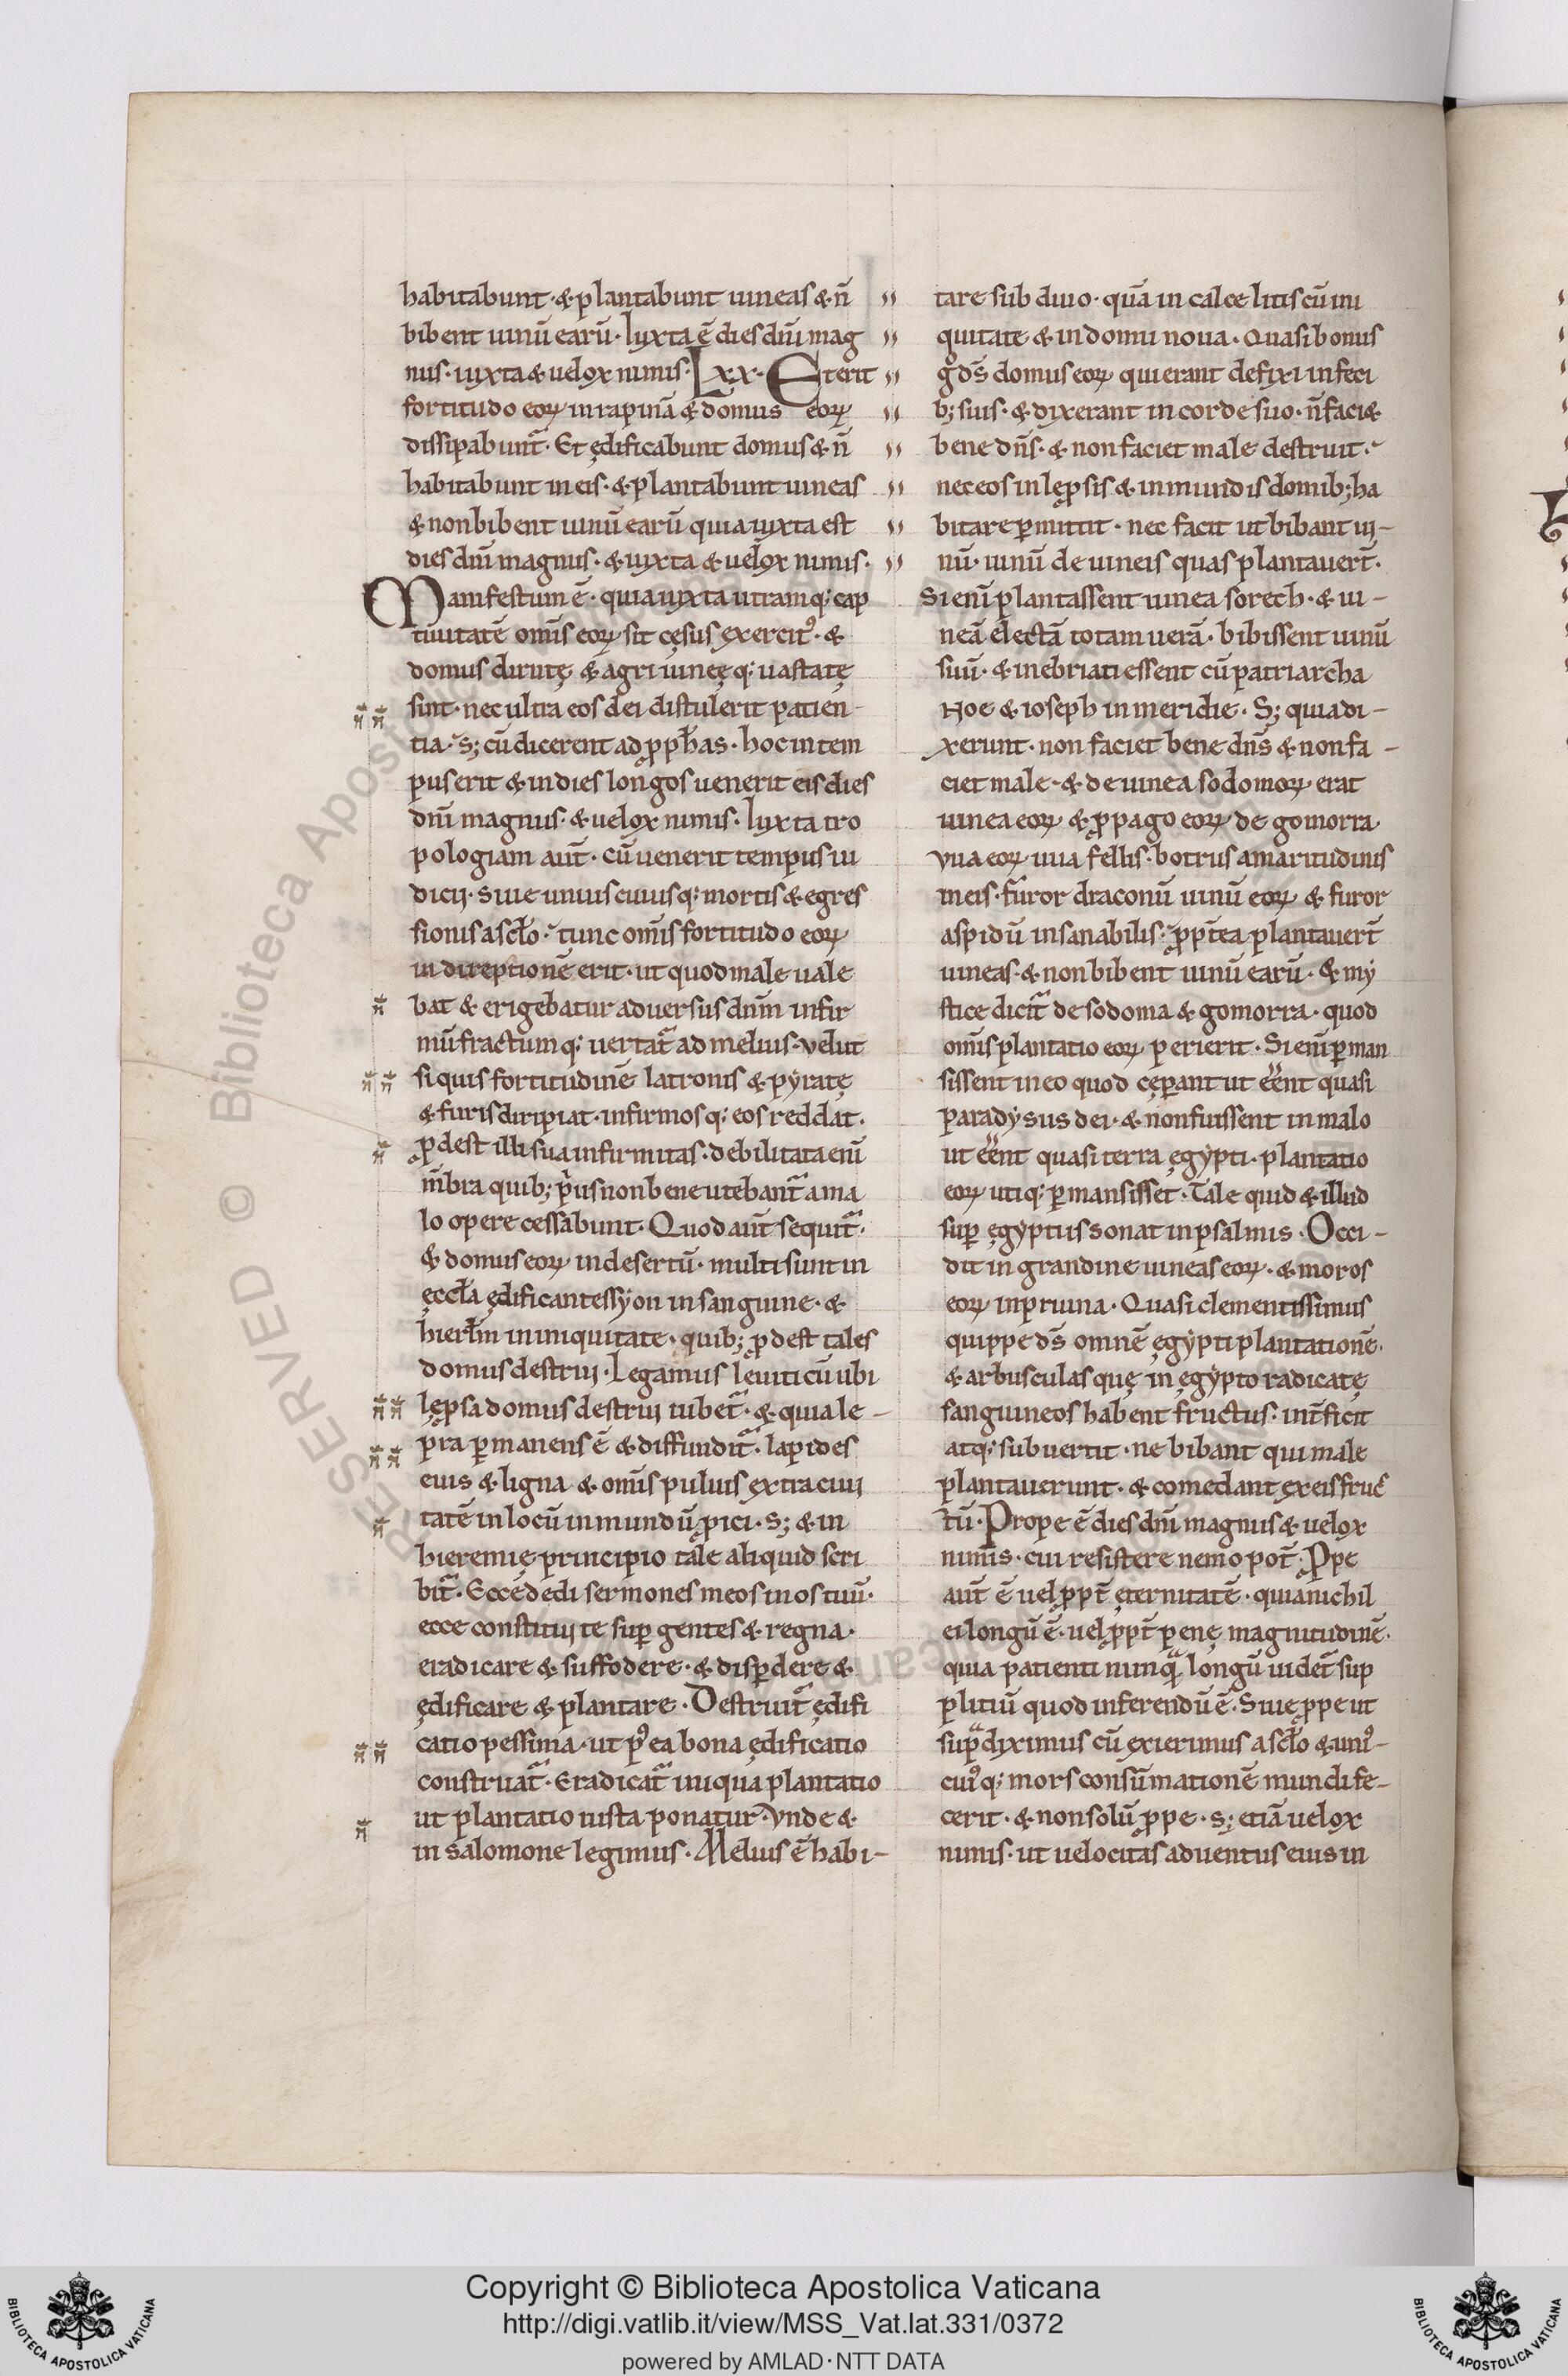 habitabunt· & plantabunt uineas & n̄
bibent uinū earū· Iuxta ē dies dn̄i mag
nus· iuxta & uelox nimis· Lxx· Et erit
fortitudo eoꝝ in rapinā & domus eoꝝ
dissipabunt᷑· Et ędificabunt domus & n̄
habitabunt in eis· & plantabunt uineas
& non bibent uinū earū quia iuxta est
dies dn̄i magnus· & iuxta & uelox nimis·
Manifestum ē· quia iuxta utramq; cap
tiuitatē omīs eoꝝ sit cęsus exercitꝰ· &
domus dirutę & agri uineęq; uastatę
sint· nec ultra eos dei distulerit patien-
tia· s; cū dicerent ad ꝓph̄as· hoc in tem
pus erit & in dies longos uenerit eis dies
dn̄i magnus· & uelox nimis· Iuxta tro
pologiam aūt· cū uenerit tempus iu
dicii· siue unius cuiusq; mortis & egres
sionis a sc̄lo· tunc omīs fortitudo eoꝝ
in direptionē erit· ut quod male uale
bat & erigebatur aduersus dn̄m infir
mū fractumq; uertat᷑ ad melius· velut
si quis fortitudinē latronis & pyratę
& furis diripiat· infirmosq; eos reddat·
ꝓdest illi sua infirmitas· debilitata eni̅
m̄bra quib; p̓us non bene utebant᷑ a ma
lo opere cessabunt· Quod aūt sequit᷑·
& domus eoꝝ in desertū· multi sunt in
ęccl̄a ędificantes syon in sanguine· &
hierl̄m in iniquitate· quib; ꝓdest tales
domus destrui· Legamus leuiticū ubi
lęp̱sa domus destrui iubet᷑· & quia le-
pra ꝑmanens ē & diffundit᷑· lapides
eius & ligna & omīs puluis extra ciui
tatē in locū inmundū ꝓici· S; & in
hieremię principio tale aliquid scri
bit᷑· Ecce dedi sermones meos in os tuū·
ecce constitui te suꝑ gentes & regna·
eradicare & suffodere· & disꝑdere &
ędificare & plantare· Destruit᷑ ędifi
catio pessima· ut pꝰ ea bona ędificatio
construat᷑· Eradicat᷑ iniqua plantatio
ut plantatio iusta ponatur· Vnde &
in salomone legimus· Melius ē habi-
tare sub diuo· quā in calce litis cū ini
quitate & in domu noua· Quasi bonus
g̊ ds̄ domus eoꝝ qui erant defixi in feci
b; suis· & dixerant in corde suo· n̄ faci&
bene dn̄s· & non faciet male destruit·
nec eos in lęꝓsis & inmundis domib; ha
bitare ꝑmittit· nec facit ut bibant ui-
nū· uinū de uineis quas plantauert̄·
Si eni̅ plantassent uinea sorech· & ui-
neā electā totam uerā· bibissent uinū
suū· & inebriati essent cū patriarcha
Noe & ioseph in meridie· S; quia di-
xerunt· non faciet bene dn̄s & non fa-
ciet male· & de uinea sodomoꝝ erat
uinea eoꝝ & ꝓpago eoꝝ de gomorra·
vua eoꝝ uua fellis· botrus amaritudinis
in eis· furor draconū uinū eoꝝ & furor
aspidū insanabilis· ꝓpt̄ea plantauert̄
uineas· & non bibent uinū earū· & my
stice dicit᷑ de sodoma & gomorra· quod
omīs plantatio eoꝝ perierit· Si eni̅ ꝑman
sissent in eo quod cęꝑant ut eēnt quasi
paradysus dei· & non fuissent in malo
ut eēnt quasi terra ęgypti· plantatio
eoꝝ utiq; ꝑmansisset· Tale quid & illud
suꝑ ęgyptiis sonat in psalmis· Occi-
dit in grandine uineas eoꝝ· & moros
eoꝝ in pruina· Quasi clementissimus
quippe ds̄ omnē ęgypti plantationē·
& arbusculas quę in ęgypto radicatę
sanguineos habent fructus· int̄ficit
atq; subuertit· ne bibant qui male
plantauerunt· & comedant ex eis fruc
tū· Prope ē dies dn̄i magnus & uelox
nimis· cui resistere nemo pot̄· Ꝓpe
aūt ē uel ꝓpt̄ ęternitatē· quia nichil
ei longū ē· uel ꝓpt̄ penę magnitudinē·
quia patienti nunq̄ longū uidet̄ sup
plitiū quod inferendū ē· Siue ꝓpe ut
sup̄ diximus cū exierimus a sc̄lo & uniꝰ-
cuiꝰq; mors consūmationē mundi fe-
cerit· & non solū ꝓpe· s; etiā uelox
nimis· ut uelocitas aduentus eius in
Copyright © Biblioteca Apostolica Vaticana
http://digi.vatlib.it/view/MSS_Vat.lat.331/0372
powered by AMLAD·NTT DATA
BIBLIOTECA APOSTOLICA VATICANA
BIBLIOTECA APOSTOLICA VATICANA